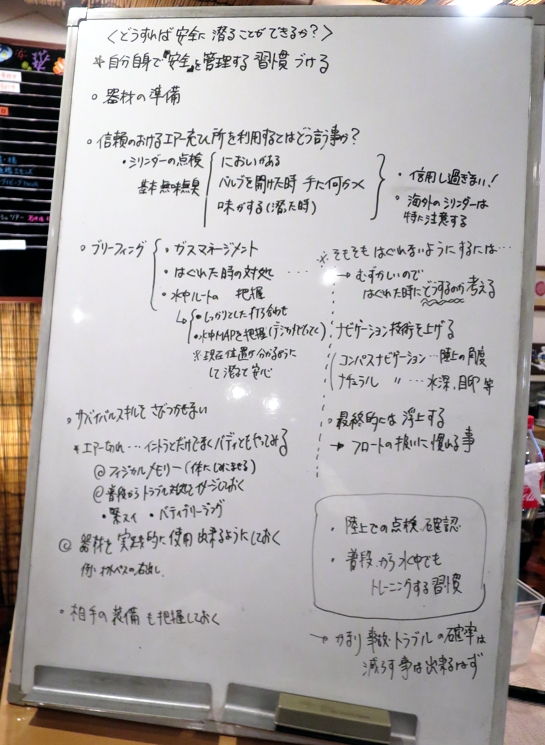 〈どうすれば安全に潜ることができるか？〉
＊自分自身で"安全"を管理する習慣づける
○ 器材の準備
○ 信頼のおけるエアー充てん所を利用するとはどう言う事か？
・シリンダーの点検
基本 無味無臭
においがある
バルブを開けた時 手に何かつく
味がする(潜た時)
・信用し過ぎない!
・海外のシリンダーは
特に注意する
○ ブリーフィング
・ガスマネージメント
・はぐれた時の対処 …
・水中ルートの 把握
↳ ・しっかりとした打ち合わせ
・水中MAPを把握
※現在位置が分かるように
して潜ると安心
※そもそも はぐれないようにするには…
→ むずかしいので
はぐれた時にどうするのか考える
・ナビゲーション技術を上げる
コンパスナビゲーション…陸上の角度
ナチュラル 〃 … 水深、目印 等
・最終的には 浮上する
→ フロートの扱いに慣れる事
○ サバイバルスキルをさびつかせない
＊エアー切れ…イントラとだけでなくバディともやってみる
◎フィジカルメモリー(体にしみこませる)
◎普段からトラブル対処をイメージしておく
・緊スイ ・バディブリージング
◎ 器材を実践的に使用出来るようにしておく
例:
○ 相手の装備も把握しておく
・陸上での点検、確認
・普段から水中でも
トレーニングする習慣
→ つまり 事故・トラブルの確率は
減らす事は出来るはず